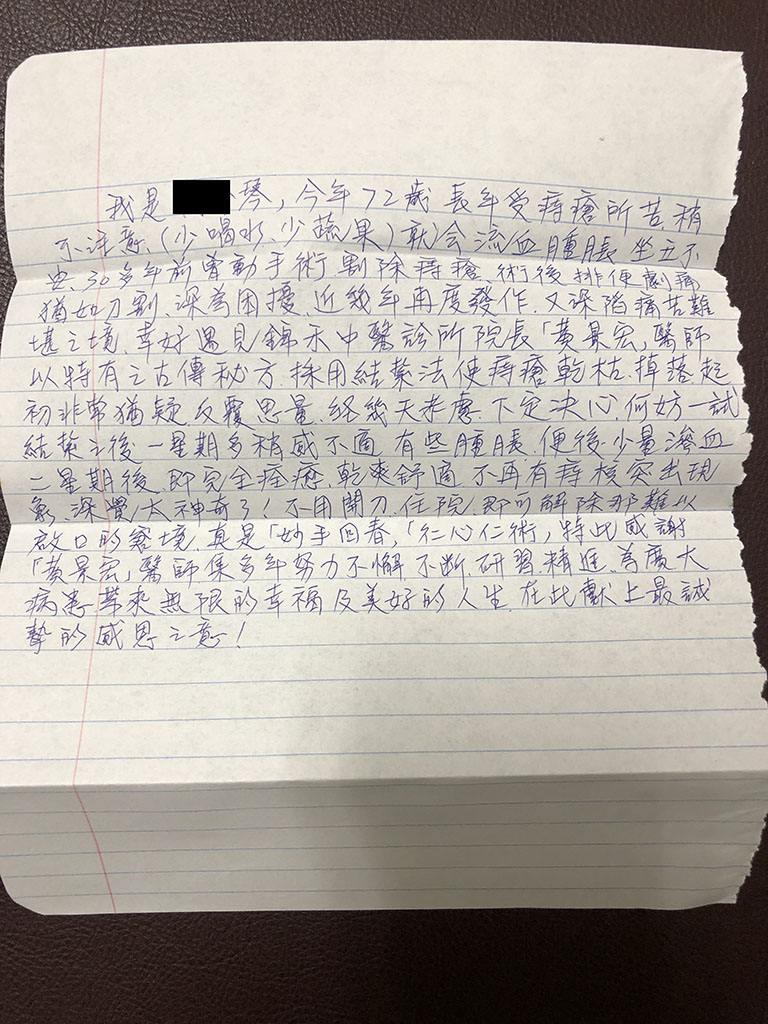 我是琴,今年72歲 長年受痔瘡所苦.稍
不注意,(少喝水、少蔬果)就会流血腫脹 坐立不
安.30多年前曾動手術割除痔瘡、術後排便劇痛
猶如刀割、深為困擾.近幾年再度發作 又深陷痛苦難
堪之境、幸好遇見錦禾中醫診所院長「黃景宏」醫師
以特有之古傳秘方.採用結紮法使痔瘡乾枯.掉落.起
初非常猶疑、反覆思量、經幾天考慮.下定決心何妨一試
結紮之後一星期多稍感不適 有些腫脹、便後少量滲血
二星期後、即完全痊癒、乾爽舒適 不再有痔核突出現
象、深覺太神奇了!不用開刀.住院、即可解除那難以
啟口的窘境、真是「妙手回春」「仁心仁術」特此感謝
「黃景宏」醫師集多年努力不懈 不斷研習精進.為廣大
病患帶來無限的幸福及美好的人生.在此獻上最誠
摯的感恩之意!